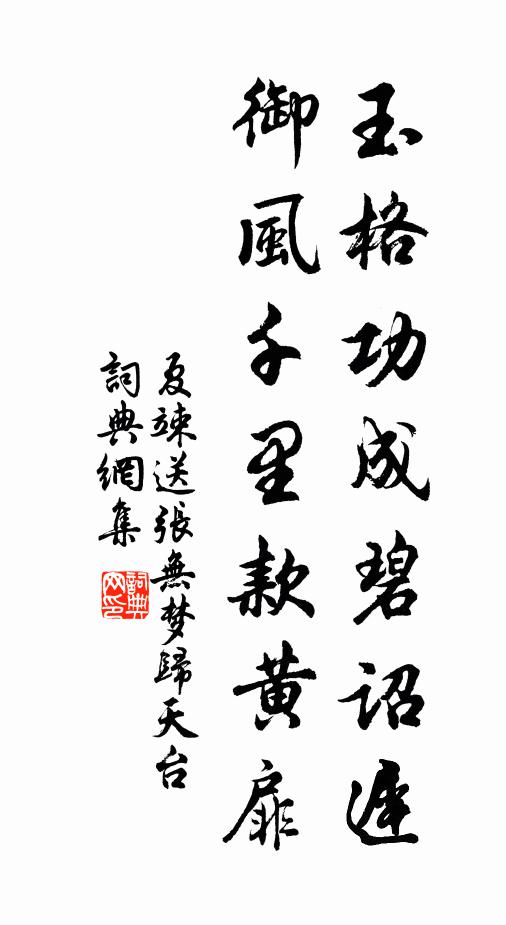 玉格功成碧詔遲
御風千里款黃扉
夏竦送張無梦歸天台
詞典網集
詞典
网印